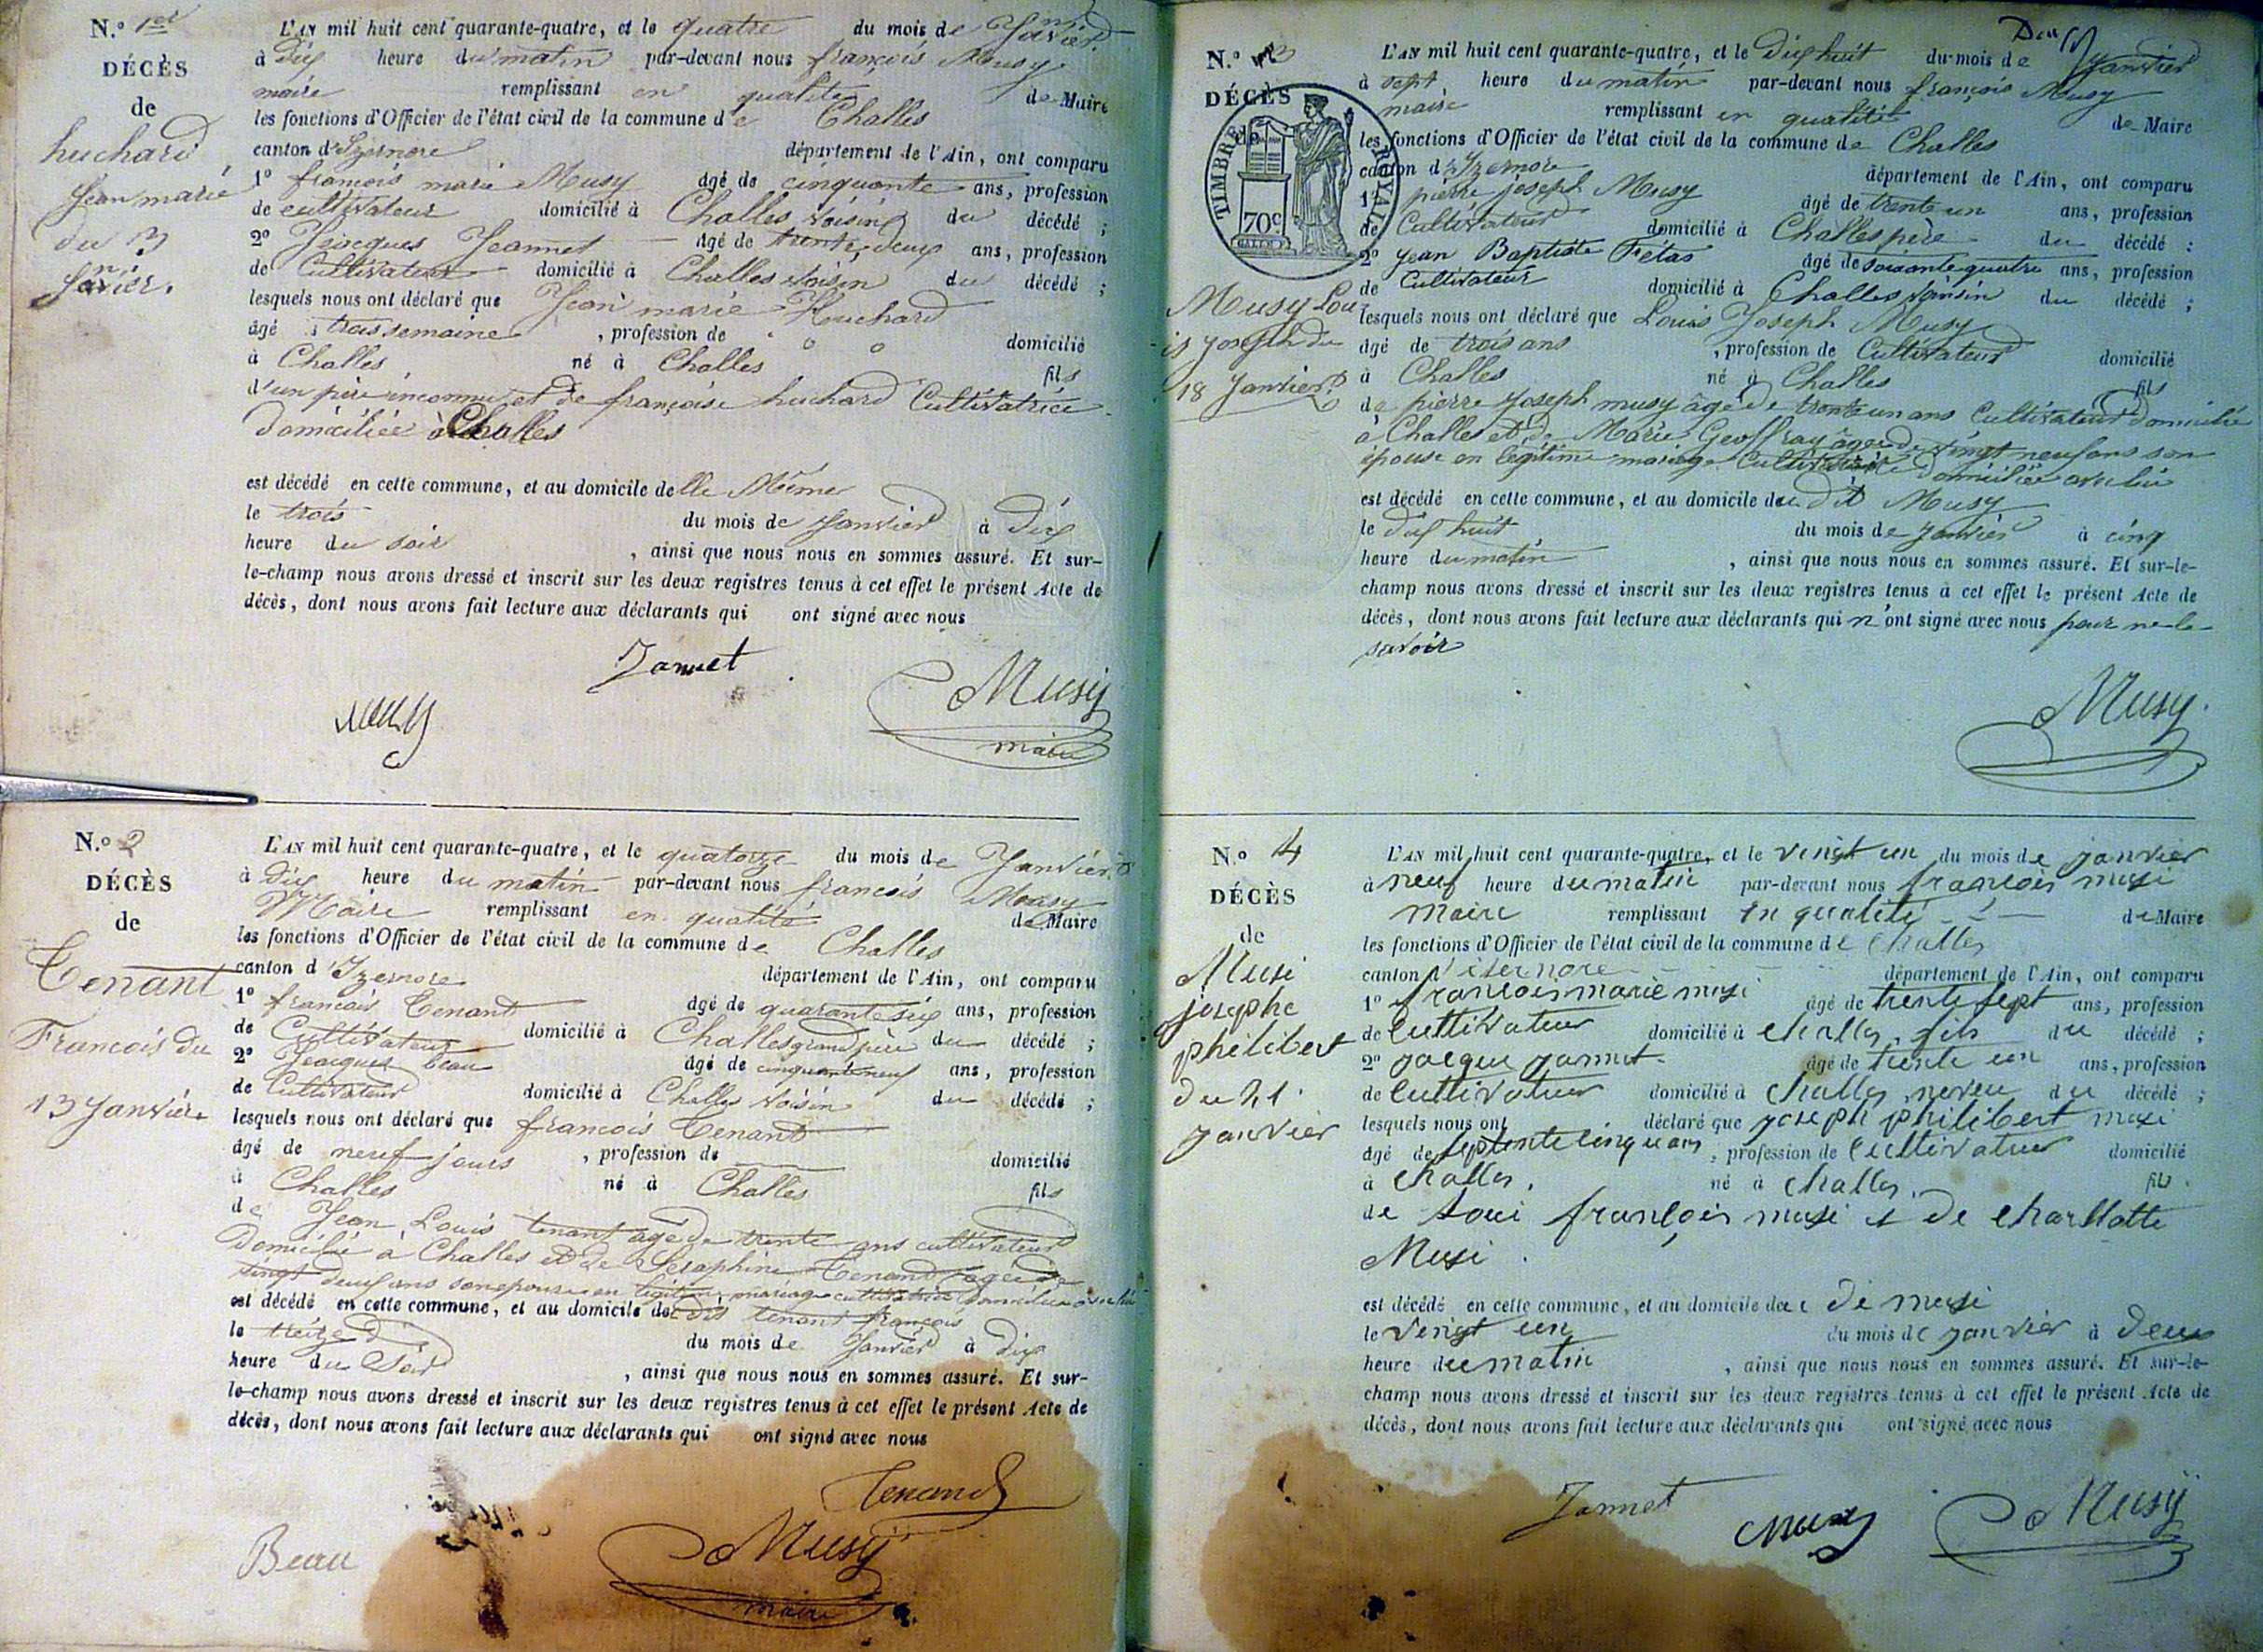 N.o 1er
DÉCÈS
de
huchard
Jean marie
du 3
Janvier.
L'AN mil huit cent quarante-quatre, et le quatre du mois de Janvier
à dix heure du matin par-devant nous françois Musy
maire remplissant en qualité de Maire
les fonctions d'Officier de l'état civil de la commune de Challes
canton d'Izernore département de l'Ain, ont comparu
1o françois marie Musy âgé de cinquante ans, profession
de cultivateur domicilié à Challes voisin du décédé ;
2o Jacques Jeannet âgé de trente deux ans, profession
de Cultivateur domicilié à Challes voisin du décédé ;
lesquels nous ont déclaré que Jean marie Huchard
âgé trois semaine , profession de domicilié
à Challes né à Challes fils
d'un père inconnu et de françoise huchard Cultivatrice
domiciliée à Challes
est décédé en cette commune, et au domicile de lle Même
le trois du mois de Janvier à dix
heure du soir , ainsi que nous nous en sommes assuré. Et sur-
le-champ nous avons dressé et inscrit sur les deux registres tenus à cet effet le présent Acte de
décès, dont nous avons fait lecture aux déclarants qui ont signé avec nous
Jannet
Musy
Musy
maire
N.o 2
DÉCÈS
de
Tenant
François du
13 Janvier
L'AN mil huit cent quarante-quatre, et le quatorze du mois de Janvier
à dix heure du matin par-devant nous françois Musy
Maire remplissant en qualité de Maire
les fonctions d'Officier de l'état civil de la commune de Challes
canton d'Izernore département de l'Ain, ont comparu
1o françois Tenant âgé de quarante six ans, profession
de Cultivateur domicilié à Challes grand père du décédé ;
2o Jacques beau âgé de cinquante neuf ans, profession
de Cultivateur domicilié à Challes voisin du décédé ;
lesquels nous ont déclaré que françois Tenant
âgé de neuf jours , profession de domicilié
à Challes né à Challes fils
de Jean Louis tenant âgé de trente ans cultivateur
domicilié à Challes et de Séraphine Tenand agée de
vingt deux ans son epouse en légitime mariage cultivatrice domiciliée avec lui
est décédé en cette commune, et au domicile du dit tenant françois
le treize du mois de Janvier à dix
heure du Soir , ainsi que nous nous en sommes assuré. Et sur-
le-champ nous avons dressé et inscrit sur les deux registres tenus à cet effet le présent Acte de
décès, dont nous avons fait lecture aux déclarants qui ont signé avec nous
Tenand
Beau
Musy
maire
Deux
N.o 3
DÉCÈS
de
TIMBRE ROYAL
70c
Musy Lou
is Joseph du
18 Janvier
L'AN mil huit cent quarante-quatre, et le Dix huit du mois de Janvier
à sept heure du matin par-devant nous françois Musy
maire remplissant en qualité de Maire
les fonctions d'Officier de l'état civil de la commune de Challes
canton d'Izernore département de l'Ain, ont comparu
1o pierre joseph Musy âgé de trente un ans, profession
de Cultivateur domicilié à Challes père du décédé ;
2o Jean Baptiste Fétas âgé de soixante quatre ans, profession
de Cultivateur domicilié à Challes voisin du décédé ;
lesquels nous ont déclaré que Louis Joseph Musy
âgé de trois ans , profession de Cultivateur domicilié
à Challes né à Challes fils
de pierre Joseph musy âgé de trente un ans Cultivateur domicilié
à Challes et de Marie Geoffray âgée de vingt neuf ans son
épouse en légitime mariage Cultivatrice domiciliée avec lui
est décédé en cette commune, et au domicile du dit Musy
le dix huit du mois de Janvier à cinq
heure du matin , ainsi que nous nous en sommes assuré. Et sur-le-
champ nous avons dressé et inscrit sur les deux registres tenus à cet effet le présent Acte de
décès, dont nous avons fait lecture aux déclarants qui n'ont signé avec nous pour ne le
savoir
Musy
N.o 4
DÉCÈS
de
Musi
josephe
philibert
du 21
janvier
L'AN mil huit cent quarante-quatre, et le vingt un du mois de janvier
à neuf heure du matin par-devant nous françois musi
maire remplissant en qualité de Maire
les fonctions d'Officier de l'état civil de la commune de Challes
canton d'isernore département de l'Ain, ont comparu
1o francois marie musi âgé de trente sept ans, profession
de Cultivateur domicilié à challes, fils du décédé ;
2o jacque jannet âgé de trente un ans, profession
de Cultivateur domicilié à challes neveu du décédé ;
lesquels nous ont déclaré que joseph philibert musi
âgé de septente cinq ans , profession de Cultivateur domicilié
à Challes, né à challes, fils
de Loui françois musi et de charllotte
Musi
est décédé en cette commune, et au domicile du di musi
le vingt un du mois de janvier à deux
heure du matin , ainsi que nous nous en sommes assuré. Et sur-le-
champ nous avons dressé et inscrit sur les deux registres tenus à cet effet le présent Acte de
décès, dont nous avons fait lecture aux déclarants qui ont signé avec nous
Jannet
Musy
Musy